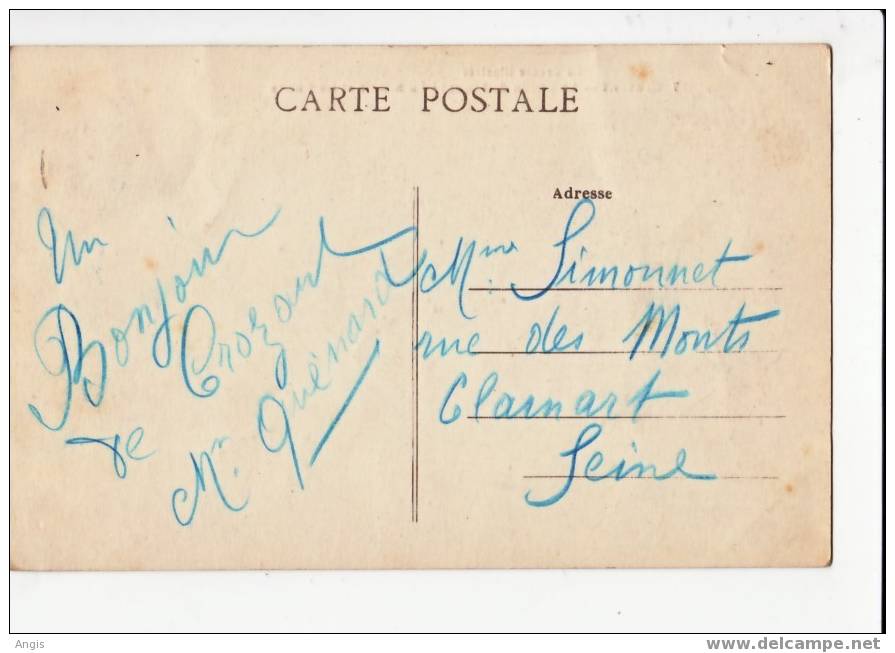 CARTE POSTALE
Un
Bonjour
de Crozant
Mr. Quénard
Adresse
Mme Simonnet
rue des Monts
Clamart
Seine
Angis
www.delcampe.net